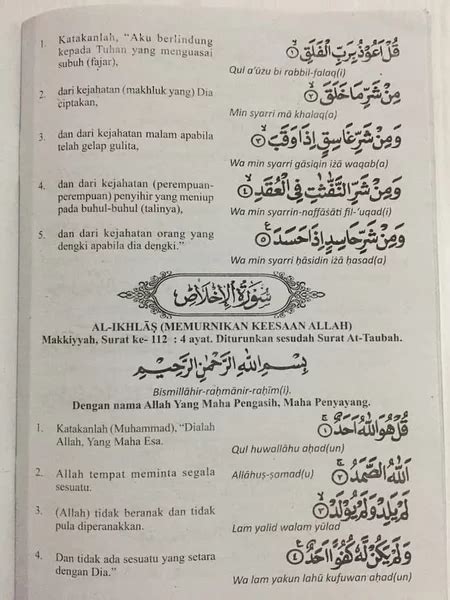 1. Katakanlah, "Aku berlindung
kepada Tuhan yang menguasai
subuh (fajar),
قُلْ اَعُوْذُ بِرَبِّ الْفَلَقِۙ ١
Qul a'ūżu bi rabbil-falaq(i)
2. dari kejahatan (makhluk yang) Dia
ciptakan,
مِنْ شَرِّ مَا خَلَقَۙ ٢
Min syarri mā khalaq(a)
3. dan dari kejahatan malam apabila
telah gelap gulita,
وَمِنْ شَرِّ غَاسِقٍ اِذَا وَقَبَۙ ٣
Wa min syarri gāsiqin iżā waqab(a)
4. dan dari kejahatan (perempuan-
perempuan) penyihir yang meniup
pada buhul-buhul (talinya),
وَمِنْ شَرِّ النَّفّٰثٰتِ فِى الْعُقَدِۙ ٤
Wa min syarrin-naffāṡāti fil-'uqad(i)
5. dan dari kejahatan orang yang
dengki apabila dia dengki."
وَمِنْ شَرِّ حَاسِدٍ اِذَا حَسَدَ ࣖ ٥
Wa min syarri ḥāsidin iżā ḥasad(a)
سُوْرَةُ الْاِخْلَاصِ
AL-IKHLĀṢ (MEMURNIKAN KEESAAN ALLAH)
Makkiyyah, Surat ke- 112 : 4 ayat. Diturunkan sesudah Surat At-Taubah.
بِسْمِ اللهِ الرَّحْمٰنِ الرَّحِيْمِ
Bismillāhir-raḥmānir-raḥīm(i).
Dengan nama Allah Yang Maha Pengasih, Maha Penyayang.
1. Katakanlah (Muhammad), "Dialah
Allah, Yang Maha Esa.
قُلْ هُوَ اللهُ اَحَدٌۚ ١
Qul huwallāhu aḥad(un)
2. Allah tempat meminta segala
sesuatu.
اَللهُ الصَّمَدُۚ ٢
Allāhuṣ-ṣamad(u)
3. (Allah) tidak beranak dan tidak
pula diperanakkan.
لَمْ يَلِدْ وَلَمْ يُوْلَدْۙ ٣
Lam yalid walam yūlad
4. Dan tidak ada sesuatu yang setara
dengan Dia."
وَلَمْ يَكُنْ لَّهٗ كُفُوًا اَحَدٌ ࣖ ٤
Wa lam yakun lahū kufuwan aḥad(un)